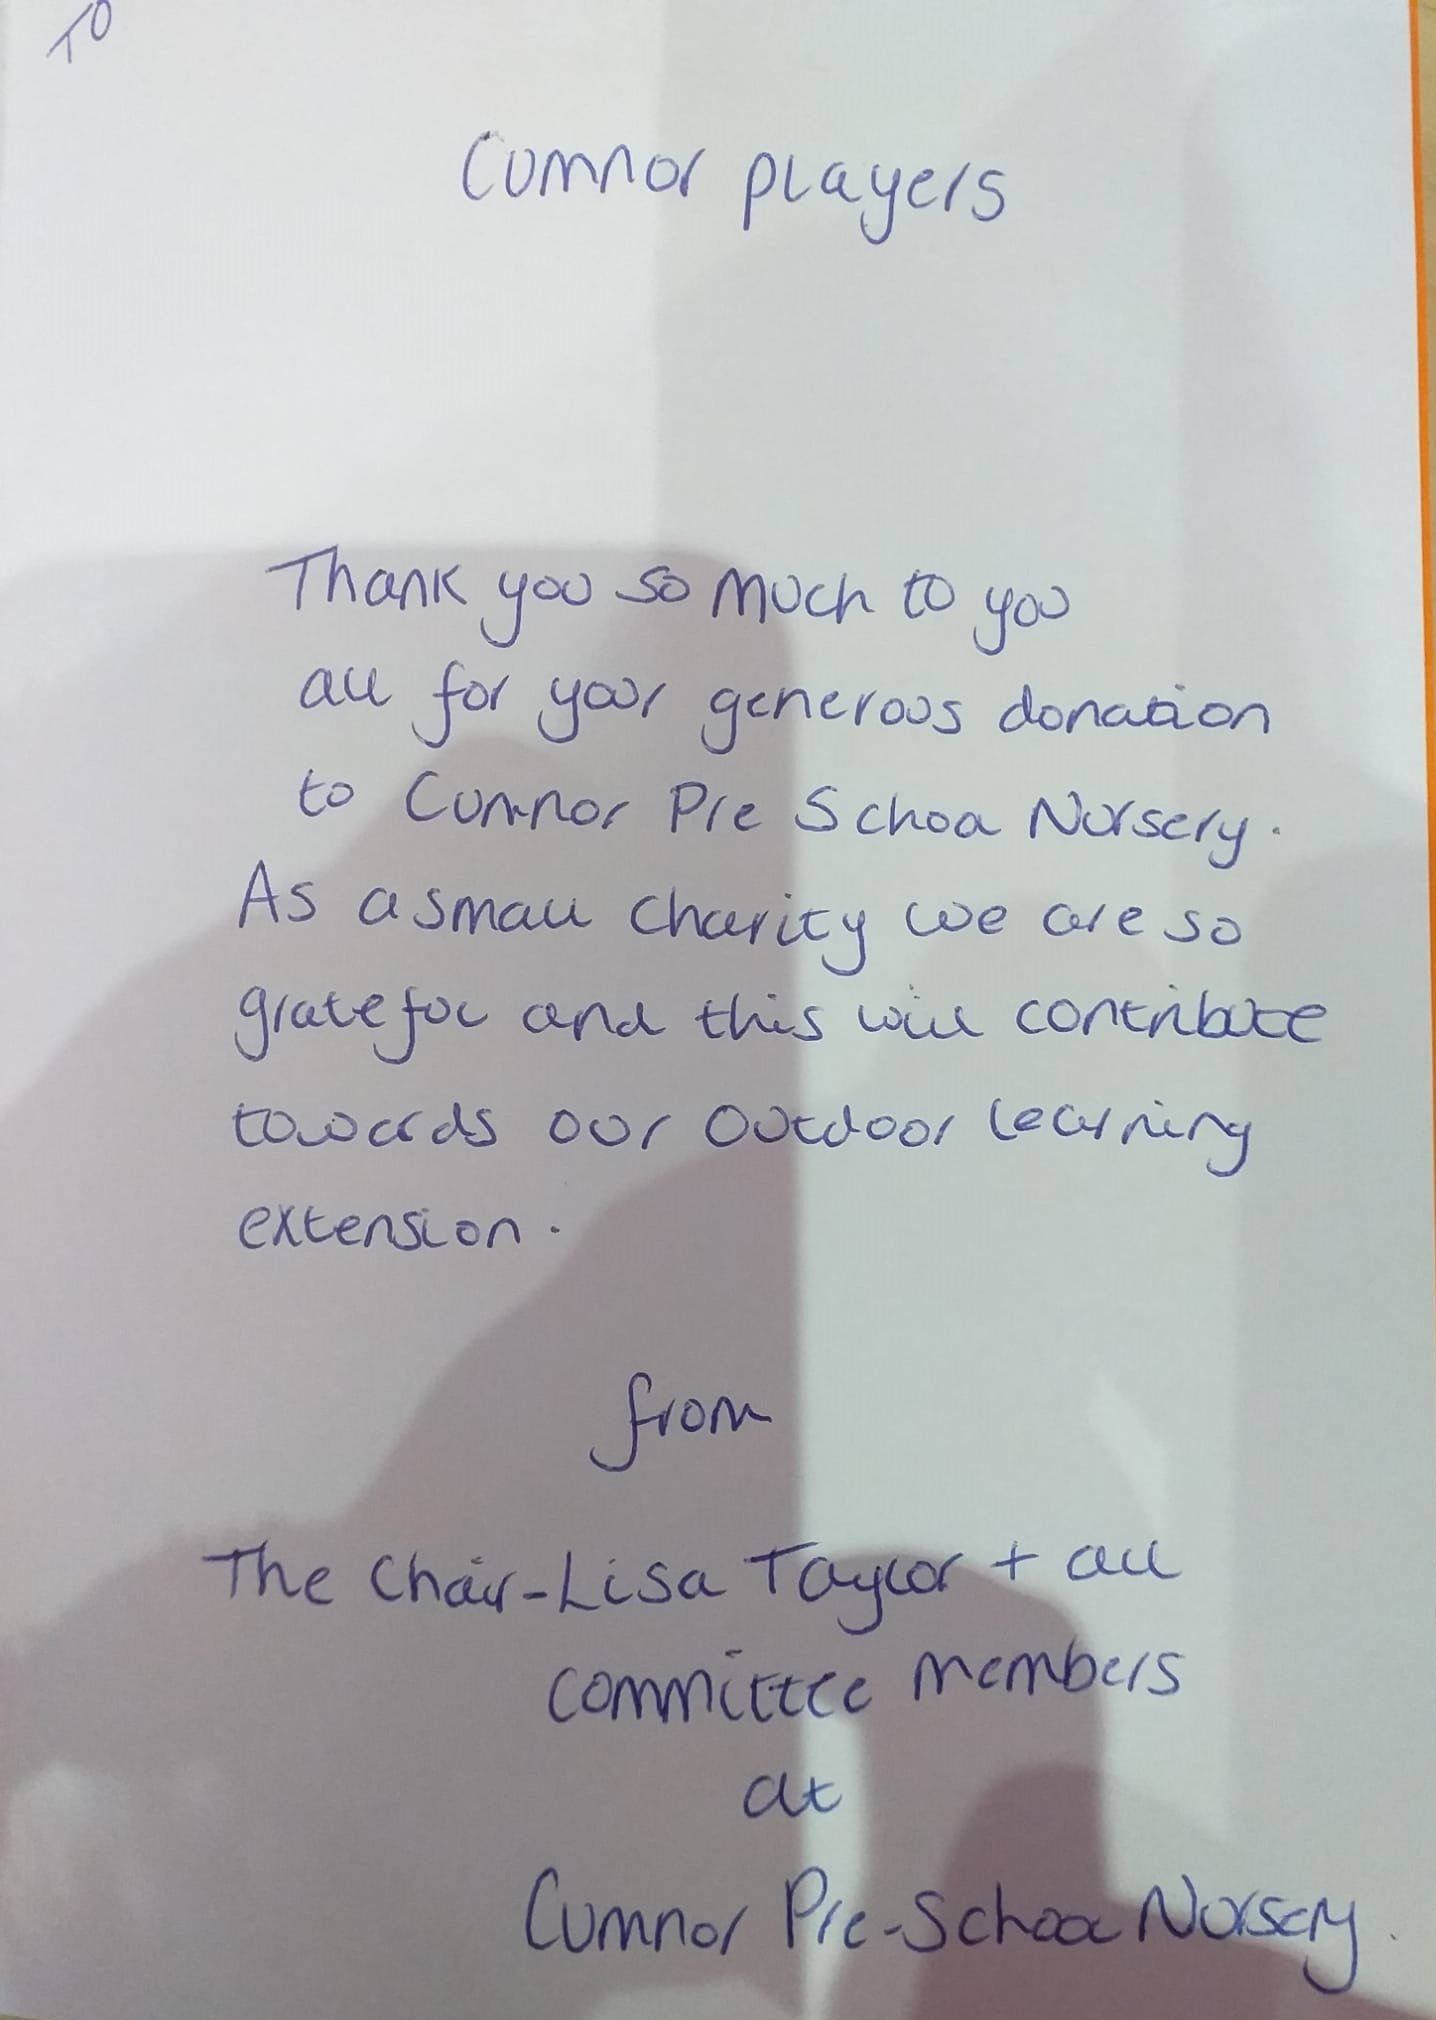 To
Cumnor players
Thank you so much to you
all for your generous donation
to Cumnor Pre School Nursery.
As a small charity we are so
grateful and this will contribute
towards our outdoor learning
extension.
from
The Chair-Lisa Taylor + all
committee members
at
Cumnor Pre-School Nursery.